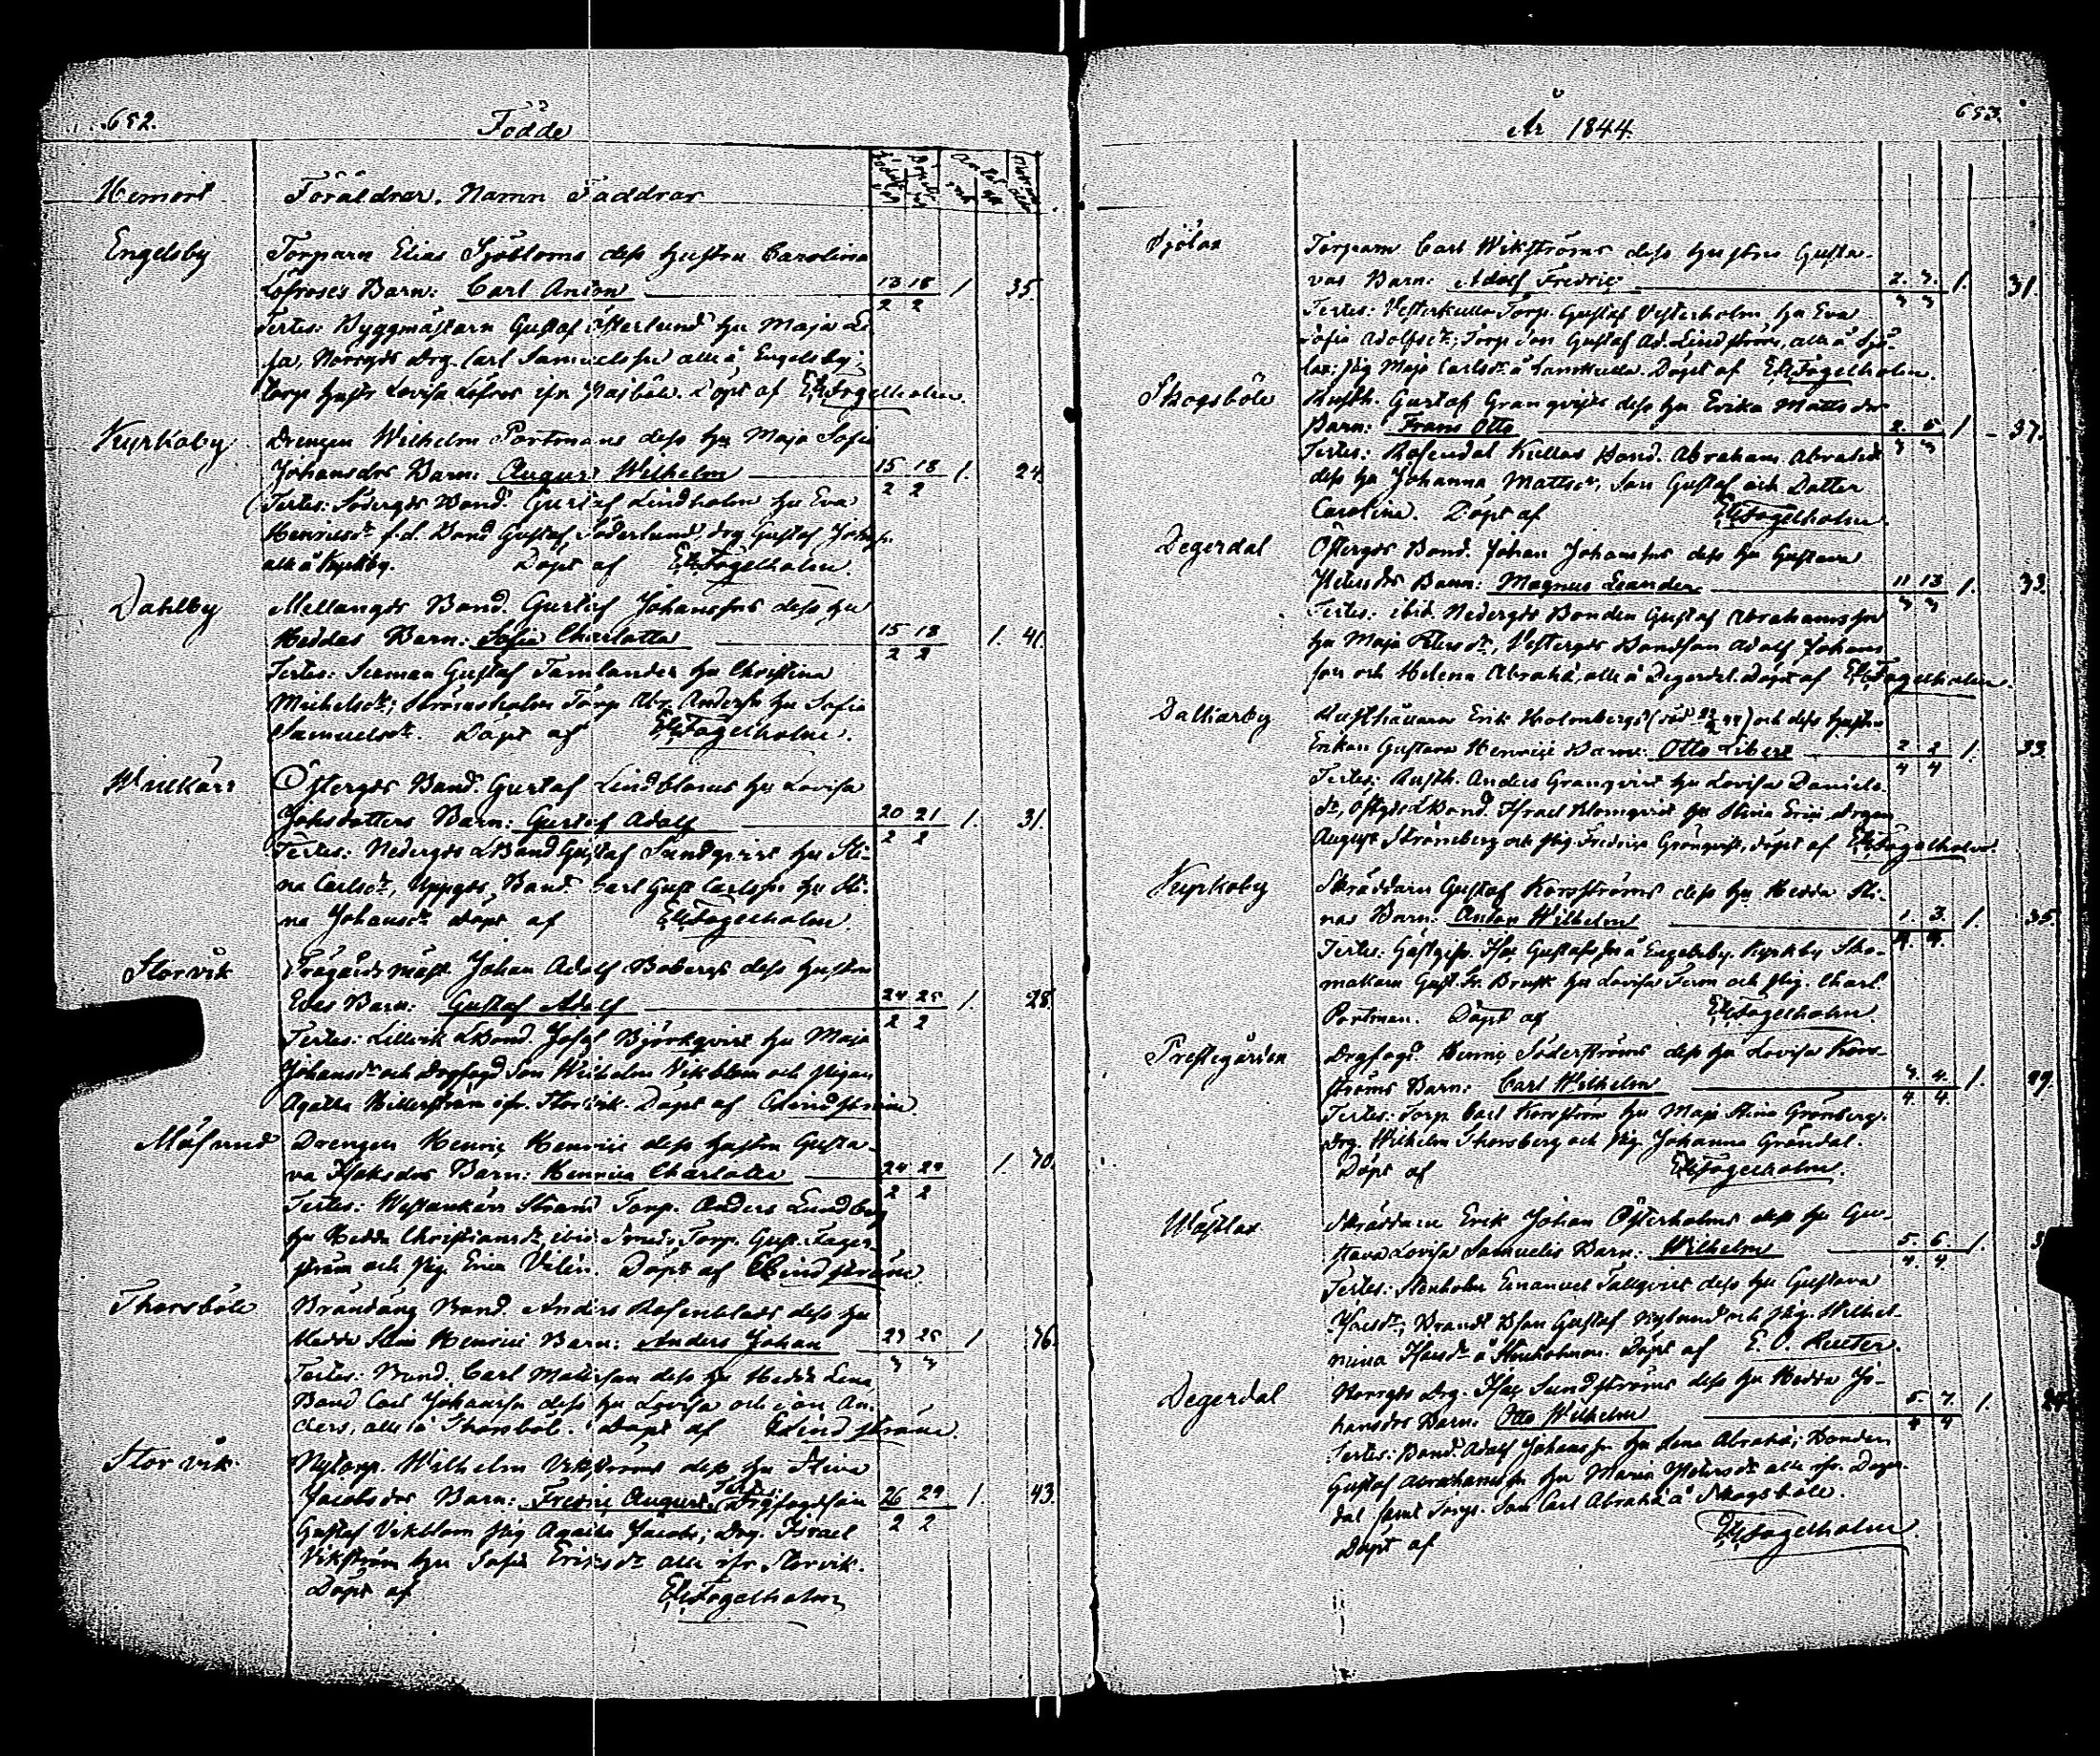 652.
Födde
Hemort Föräldrar, Namn Faddrar
Engelsby Torparn Elias Sjöbloms dess hustru Carolina
Löfroses Barn: Carl Anton 13 18 1. 35.
2 2
Testes: Byggmästarn Gustaf Österlund hu Maja Li-
sa, Norrgds drg. Carl Samuelsson alla å Engelsby;
torp hustr Lovisa Löfros ifr. Döpt af Fogelholm.
Kyrkoby Drengen Wilhelm Portmans dess hu Maja Sofia
Johansdrs Barn: August Wilhelm 15 18 1. 24.
2 2
Testes: Södergds Bond. Gustaf Lindholm hu Eva
Henricsdr f.d. Bond Gustaf Söderlund, drg Gustaf
alla å Kyrkby. Döpt af Fogelholm.
Dahlby Mellangds Bond. Gustaf Johanssons dess hu
Heddas Barn: Sofia Charlotta 15 18 1. 41.
2 2
Testes: Gustaf Tamlander hu Christina
Michelsdr; Strömsholm Torp. Abr. Anderss. hu Sofia
Samuelsdr. Döpt af Fogelholm.
Östergds Bond. Gustaf Lindbloms hu Lovisa
Johsdotters Barn: Gustaf Adolf 20 21 1. 31.
2 2
Testes: Nedergds Bond Gustaf Sundqvist hu Sti-
na Carlsdr, Uppgds Bond Carl Gust Carlss. hu Sti-
na Johansdr Döpt af Fogelholm.
Storvik Trägårdsmäst. Johan Adolf Bobergs dess hustru
Edes Barn: Gustaf Adolf 24 25 1. 28.
2 2
Testes: Bond. Josef Björkqvist hu Maja
Johansdr och Drgfogd Son Wilhelm Vikblom och Pigan
Agatha Hillerström ifr. Storvik. Döpt af Lindström
Måsund Drengen Henric Henrics dess hustru Gusta-
va Isaksdrs Barn: Henrica Charlotta 24 29 1. 40.
2 2
Testes: Westankärr Strand Torp. Anders Lundberg
hu Hedda Christiansdr, ibid. Torp. Gust. Fager-
ström och Pig. Erica Velin. Döpt af Lindström
Thorsböle Brändäng Bond. Anders Rosenblads dess hu
Hedda Henrics Barn: Anders Johan 23 25 1. 36.
3 3
Testes: Bond. Carl Mattsson dess hu Hedda Lena,
Bond Carl Johansson dess hu Lovisa och son An-
ders, alla å Thorsböl. Döpt af Lindström.
Storvik Nytorp. Wilhelm Vikströms dess hu Stina
Jacobsdrs Barn: Fredric August Test. Drgfogdson 26 29 1. 43.
Gustaf Vikblom Pig Agatha Jacobs; Drg. Israel 2 2
Vikström hu Sofia Eriksdr alla ifr Storvik.
Döpt af Fogelholm
År 1844. 653.
Sjölax Torparn Carl Wikströms dess hustru Gusta-
vas Barn: Adolf Fredric 2. 3. 1. 31.
3 3
Testes: Vesterkulla Torp. Gustaf Vesterholm hu Eva
Sofia Adolfsdr; Torp son Gustaf Ad. Lindström, alla å Sjö-
lax; Pig Maja Carlsdr å Döpt af Fogelholm.
Skogsböle Rusth. Gustaf Granqvists dess hu Erika Matts dr
Barn: Frans Otto 2. 5 1 37.
3 3
Testes: Rosendal Kullas Bond. Abraham Abrahs
dess hu Johanna Mattsdr, Son Gustaf och Dotter
Carolina. Döpt af Fogelholm.
Degerdal Östergds Bond. Johan Johanssons dess hu Gustava
Petersdrs Barn: Magnus Leander 11 13 1. 33.
3 3
Testes: ibid. Nedergds Bonden Gustaf Abrahamsson
hu Maja Petersdr, Vestergds Bondson Adolf Johans
son och Helena Abrahs, alla å Degerdal. Döpt af Fogelholm.
Dalkarby Rusthållarn Erik Holmbergs och dess hustru
Erikas Gustava Henrics Barn: Otto Libert 2 2 1. 33.
4 4
Testes: Rusth. Anders Granqvist hu Lovisa Daniels-
dr, Bond. Israel Blomqvist hu Stina Erics drgen
August Strömberg och Pig. Fredrica Grönqvist, döpt af Fogelholm.
Kyrkoby Skräddarn Gustaf Korsströms dess hu Hedda Sti-
nas Barn: Anton Wilhelm 1. 3. 1. 35.
4. 4.
Testes: Gästgifv. Isac Gustafsson å Engelsby. Kyrkby Sko-
makarn Gust. Fr. Brusk hu Lovisa och Pig. Charl.
Portman. Döpt af Fogelholm.
Prestegården Drgfogd. Henric Söderströms dess hu Lovisa Kors-
ströms Barn: Carl Wilhelm 3. 4. 1. 29.
4. 4.
Testes: Torp. Carl Korsström hu Maja Stina Grönberg,
Drg. Wilhelm Thorsberg och Pig. Johanna Gröndal.
Döpt af Fogelholm.
Skräddarn Erik Johan Österholms dess hu Gu-
stava Lovisa Samuels Barn: Wilhelm 5. 6. 1. 3
4 4.
Testes: Stenholm Emanuel Tallqvist dess hu Gustava
Isacsdr; Gustaf och Pig. Wilhel-
mina Isacsdr å Stenholmen. Döpt af E. O. Reuter.
Degerdal Norrgds Drg. Isac Sundströms dess hu Hedda Jo-
hansdrs Barn: Otto Wilhelm 5. 7. 1.
4 4
Testes: Bond. Adolf Johanss. hu Lena Abrahs; Bonden
Gustaf Abrahamss. hu Maria Petersdr alla ifr. Deger-
dal samt Torp. Son Carl Abrahs å Skogsböle.
Döpt af Fogelholm